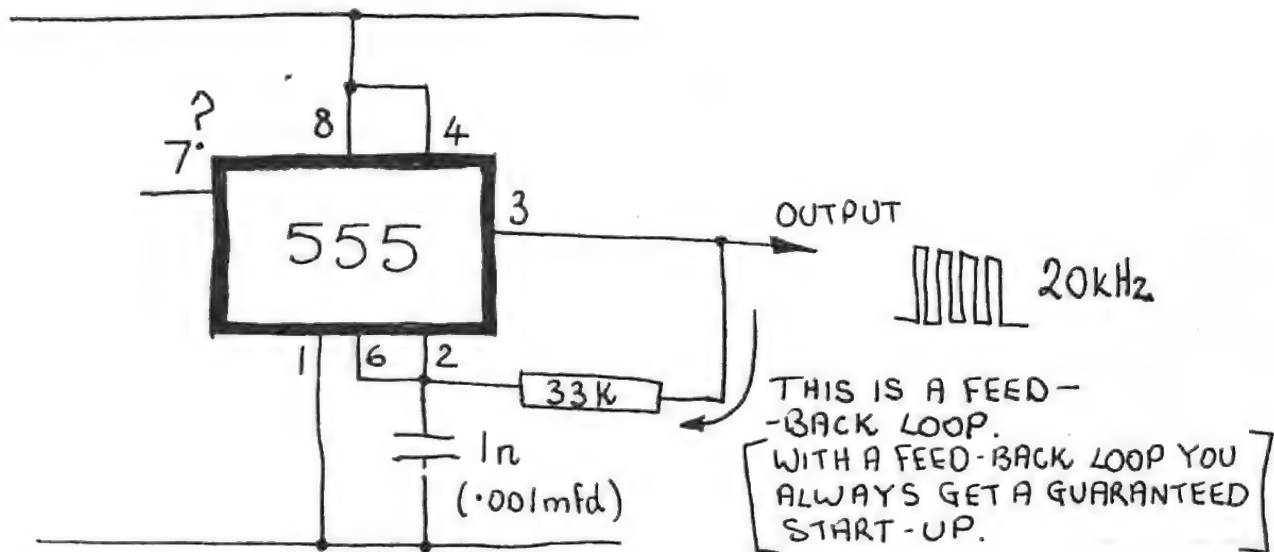 ?
7
8
4
555
3
OUTPUT
20kHz
1
6
2
33K
1n
(.001mfd)
THIS IS A FEED-
-BACK LOOP.
WITH A FEED-BACK LOOP YOU
ALWAYS GET A GUARANTEED
START-UP.